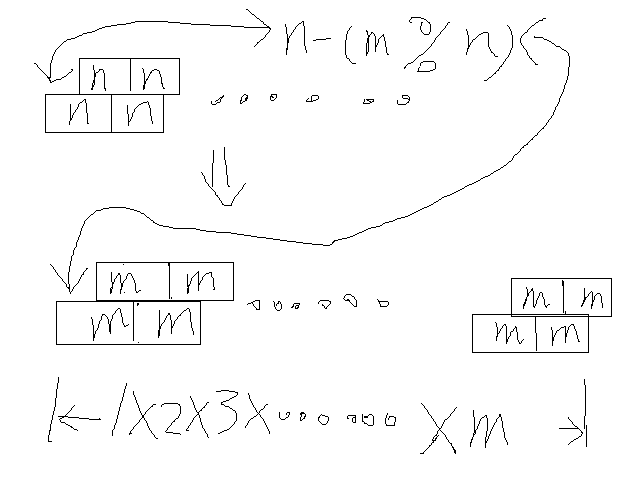 n-(m % n)
n n
n n ......
m m ...... m m
m m m m
1X2X3X......Xm